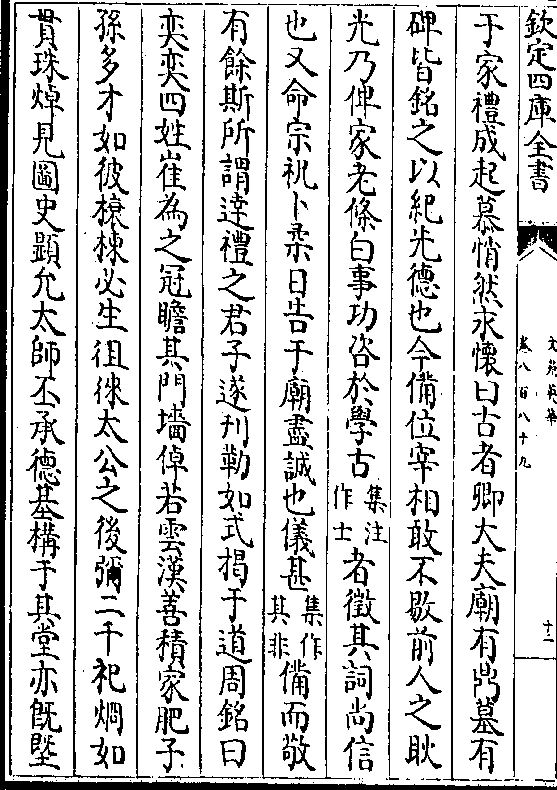 欽定四庫全書
文苑英華
卷八百八十九
十二
于家禮成起慕悄然永懷曰古者卿大夫廟有鼎墓有
碑皆銘之以紀先德也今備位宰相敢不敭前人之耿
光乃俾家老條白事功咨於學古集注作士者徵其詞尚信
也又命宗祝卜柔日告于廟盡誠也儀甚集作其非備而敬
有餘斯所謂達禮之君子遂刋勒如式揭于道周銘曰
奕奕四姓崔為之冠瞻其門墻倬若雲漢善積家肥子
孫多才如彼榱棟必生徂徠太公之後彌二千祀烱如
貫珠焯見圖史顯允太師丕承德基構于其堂亦旣塈